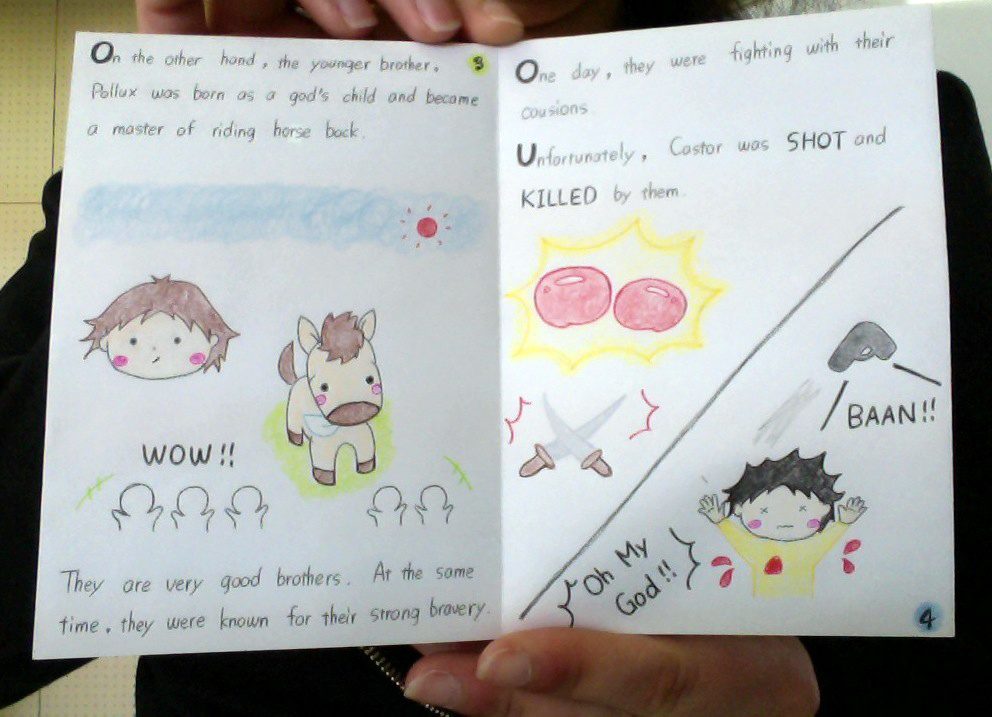 On the other hand, the younger brother.
3
Pollux was born as a god's child and become
a master of riding horse back.
WOW!!
They are very good brothers. At the same
time, they were known for their strong bravery.
One day, they were fighting with their
cousions.
Unfortunately, Castor was SHOT and
KILLED by them.
BAAN!!
Oh My
God!!
4